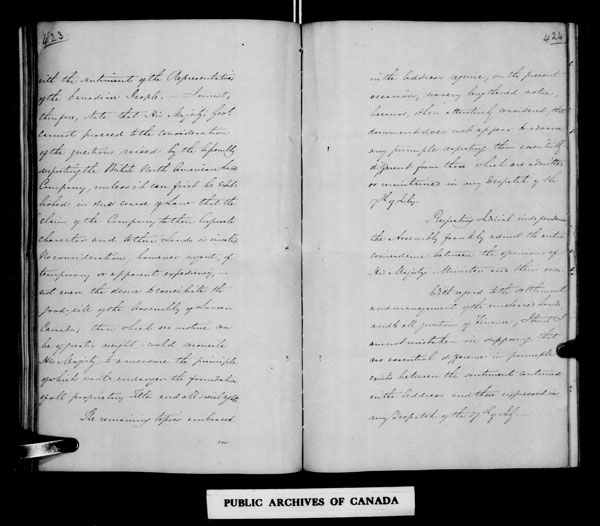 423
with the sentiments of the Representatives
of the Canadian People. — I must,
therefore, state that His Majesty's Govt
cannot proceed to the consideration
of the questions raised by the Assembly
respecting the British North American Land
Company, unless it can first be estab-
lished in due course of Law that the
claim of the Company to their Corporate
character and to their Lands is invalid
No consideration, however urgent, of
temporary or apparent expediency, —
not even the desire to conciliate the
good-will of the Assembly of Lower
Canada, than which no motive can
be of greater weight — could reconcile
His Majesty to a measure the principle
of which would endanger the foundation
of all proprietary Titles and all social rights.
The remaining topics embraced
in
424
in the Address require, on the present
occasion, no very lengthened notice,
because, when attentively considered, that
document does not appear to advance
any principle respecting them essentially
different from those which are admitted
or maintained in my Despatch of the
17th of July.
Respecting Judicial independence
the Assembly frankly admit the entire
coincidence between the opinions of
His Majesty's Ministers and their own.
With regard to the settlement
and management of the uncleared lands
and to all questions of Finance, I trust I
am not mistaken in supposing that
no essential difference in principle
exists between the sentiments contained
in the Address and those expressed in
my Despatch of the 17th of July —
PUBLIC ARCHIVES OF CANADA